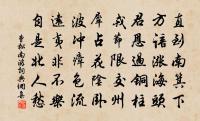 直到南箕下
方諳漲海頭
君恩過銅柱
戎節限交州
犀占花陰臥
波冲瘴色流
遠夷非不樂
自是北人愁
曹松南游詞典網集